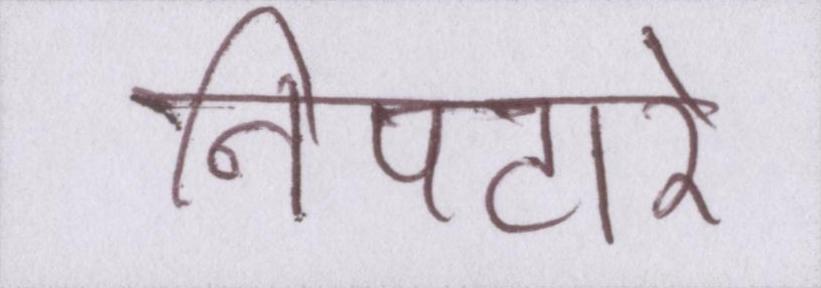 निपटारे